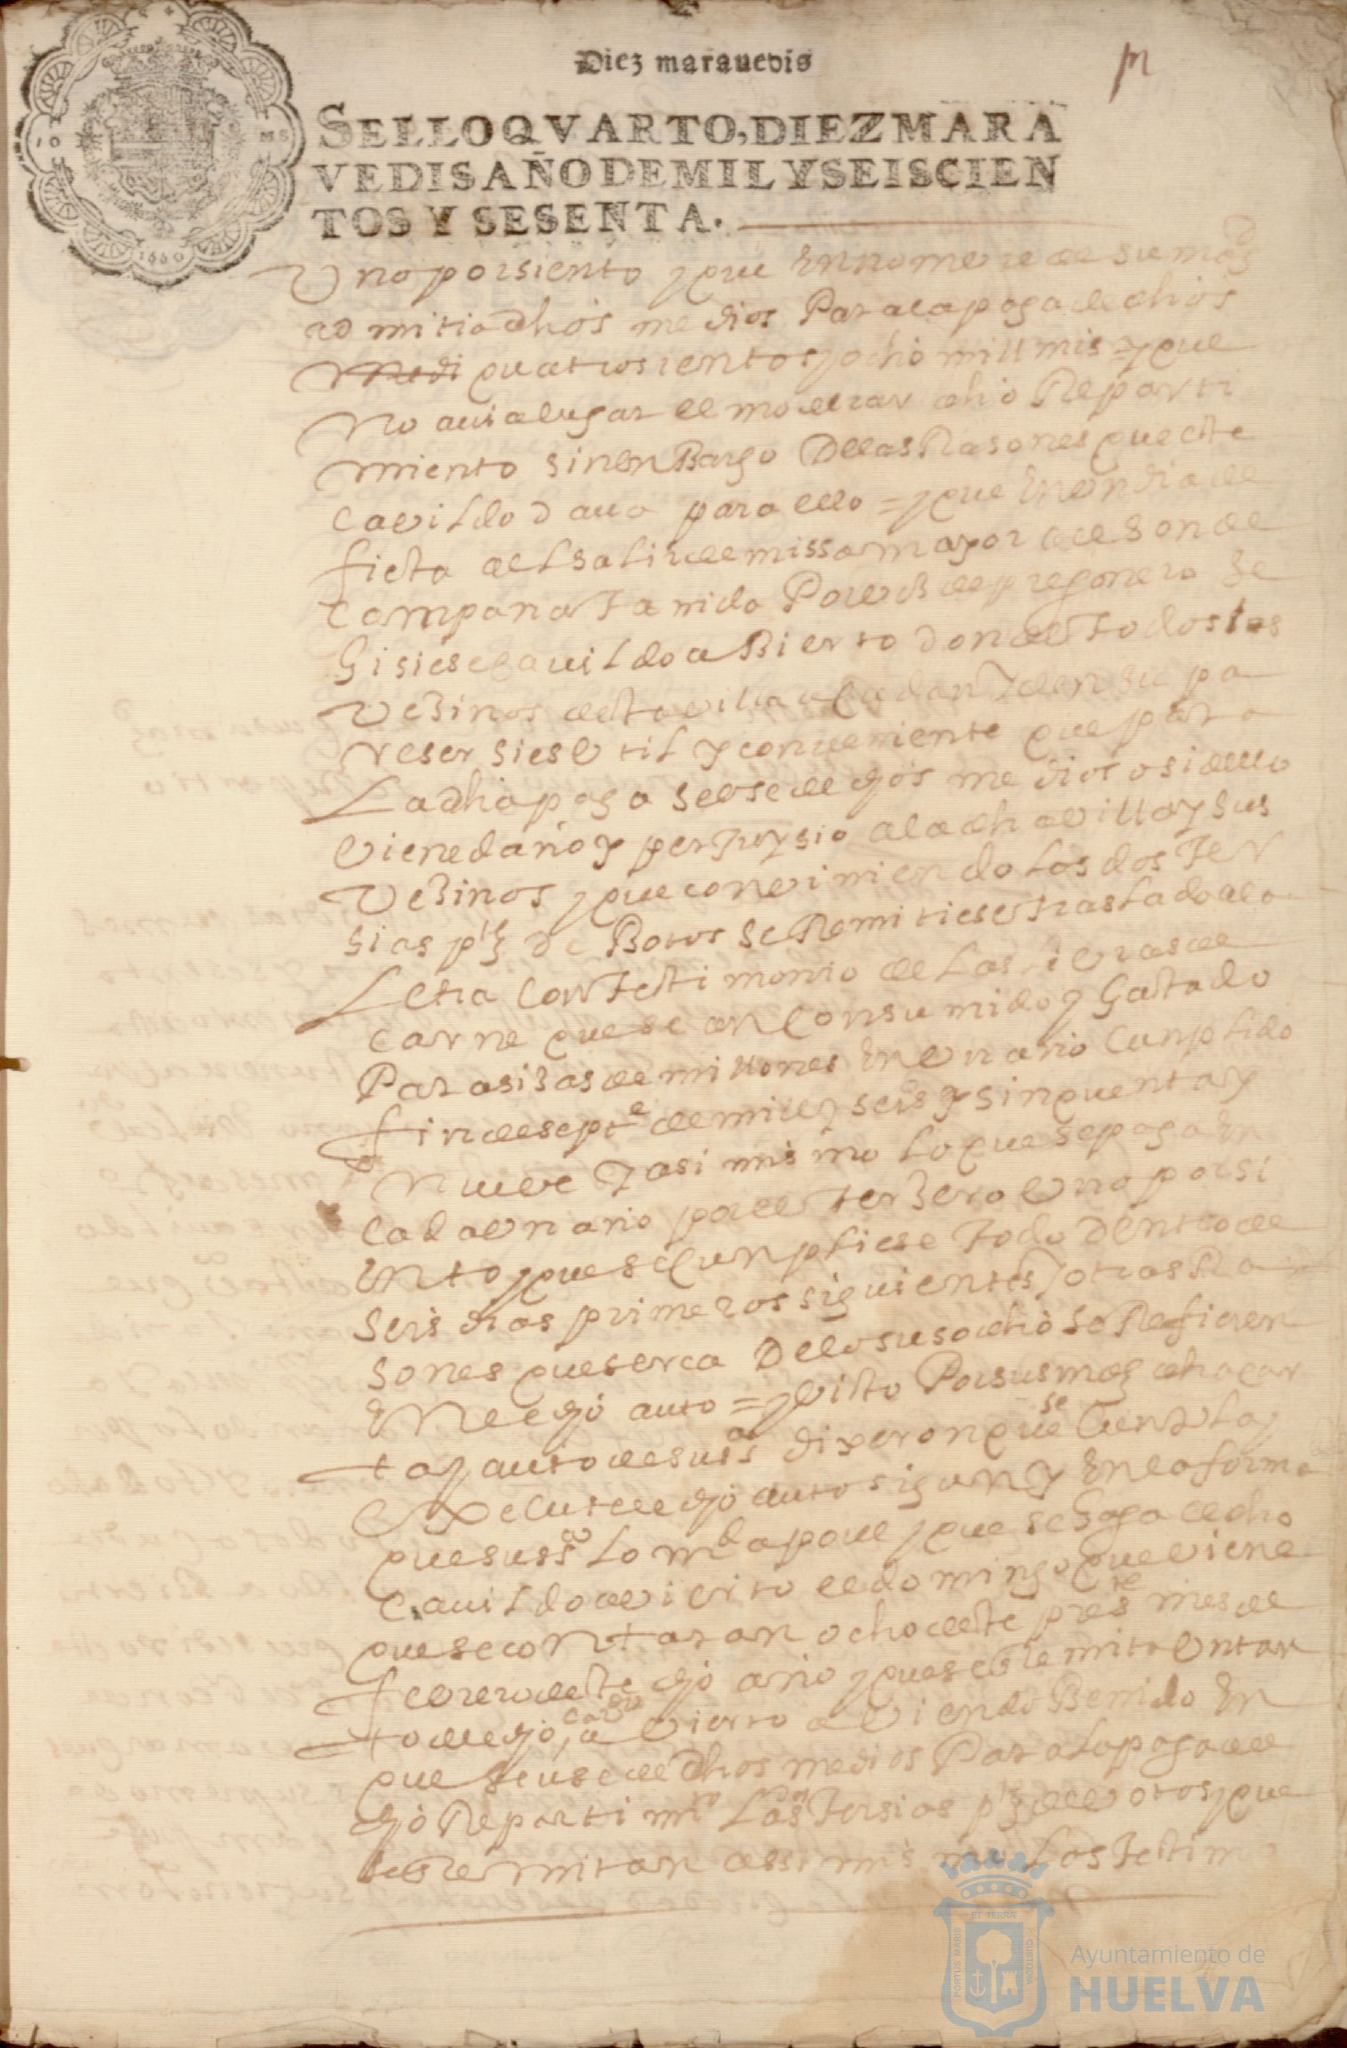 Diez marauedis
SELLO QVARTO, DIEZ MARA
VEDIS AÑO DE MIL Y SEISCIEN
TOS Y SESENTA.
10 MS
1660
Vno por siento y que En nombre de su magd
admitia dhos medios Para la paga de dhos
quatrosientos y ocho mill mrs = y que
No auia lugar el moderar dho Reparti
miento sin enBargo De las Rasones que este
cavildo daua para ello = y que En un dia de
fiesta al salir de missa mayor a el son de
campana tanida Por vos de pregonero se
hisiese cauildo aBierto donde todos los
vezinos desta villa den su pa
reser si es vtil y conveniente que para
La dha paga se use de dhos medios o si dello
viene daño y perjuysio a la dha villa y sus
vezinos y que conviniendo los dos ter
sias ptes de Botos se Remitiese traslado a la
Letra con testimonio de las livras de
carne que se an consumido y gastado
Para sisas de millones En un año cunplido
fin de septe de mill y seisos y sinquenta y
nueve y asi mismo lo que se paga En
cada un año por el terzero uno por si
ento y que se cunpliese todo dentro de
seis dias primeros siguientes y otras Ra
sones que serca De lo susodho se Refieren
En el dho auto = y visto Por sus mds dha car
ta y auto de su sa dixeron que se Cunpla y
Execute el dho auto sigun y En la forma
que su sa lo mda por el y que se haga el dho
cauildo avierto el domingo que viene
que se contaran ocho deste preste mes de
febrero deste dho año y que se le remita un tan
to del dho cavdo avierto aviendo Benido En
que se use de dhos medios Para la paga del
dho Repartimto Las tersias ptes de votos y que
se Remitan assi mismo Los testim
Ayuntamiento de
HUELVA